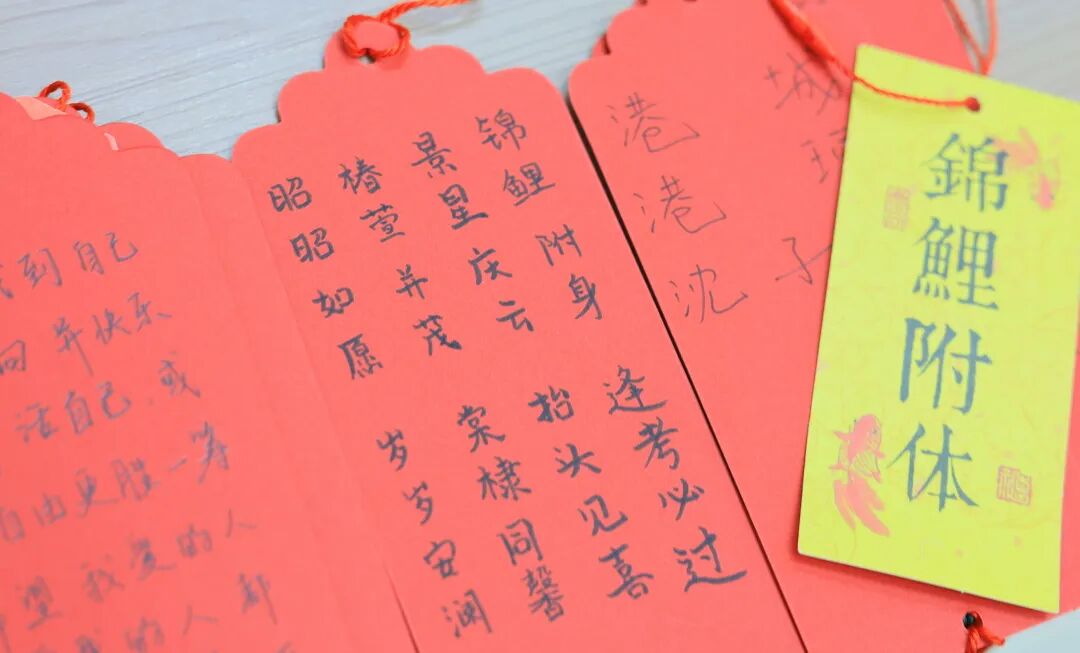 到自己
并快乐
活自己,或
自由更胜一筹
望我爱的人
的人都
锦鲤附身 逢考必过
景星庆云 抬头见喜
椿萱并茂 棠棣同馨
昭昭如愿 岁岁安澜
城 子
港港沈
錦鯉附体